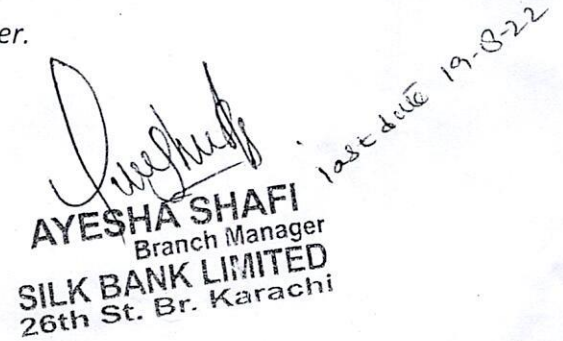 er.
last date 19-8-22
AYESHA SHAFI
Branch Manager
SILK BANK LIMITED
26th St. Br. Karachi